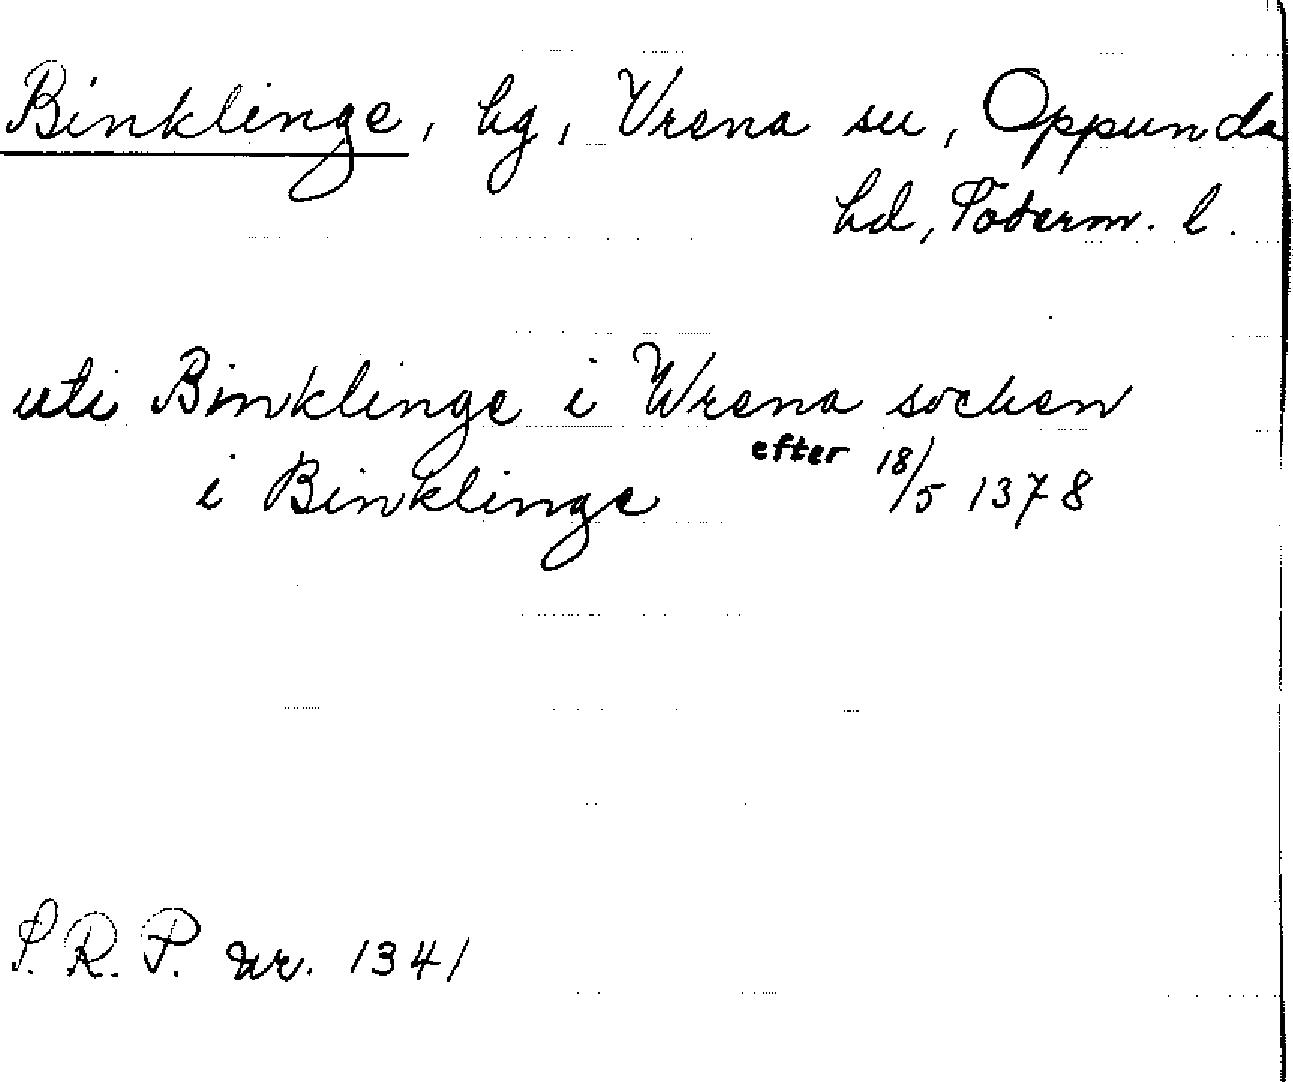 Binklinge, by, Vrena sn, Oppunda
hd, Söderm. l.
uti Binklinge i Wrena socken
i Binklinge efter 18/5 1378
S.R.P. nr. 1341